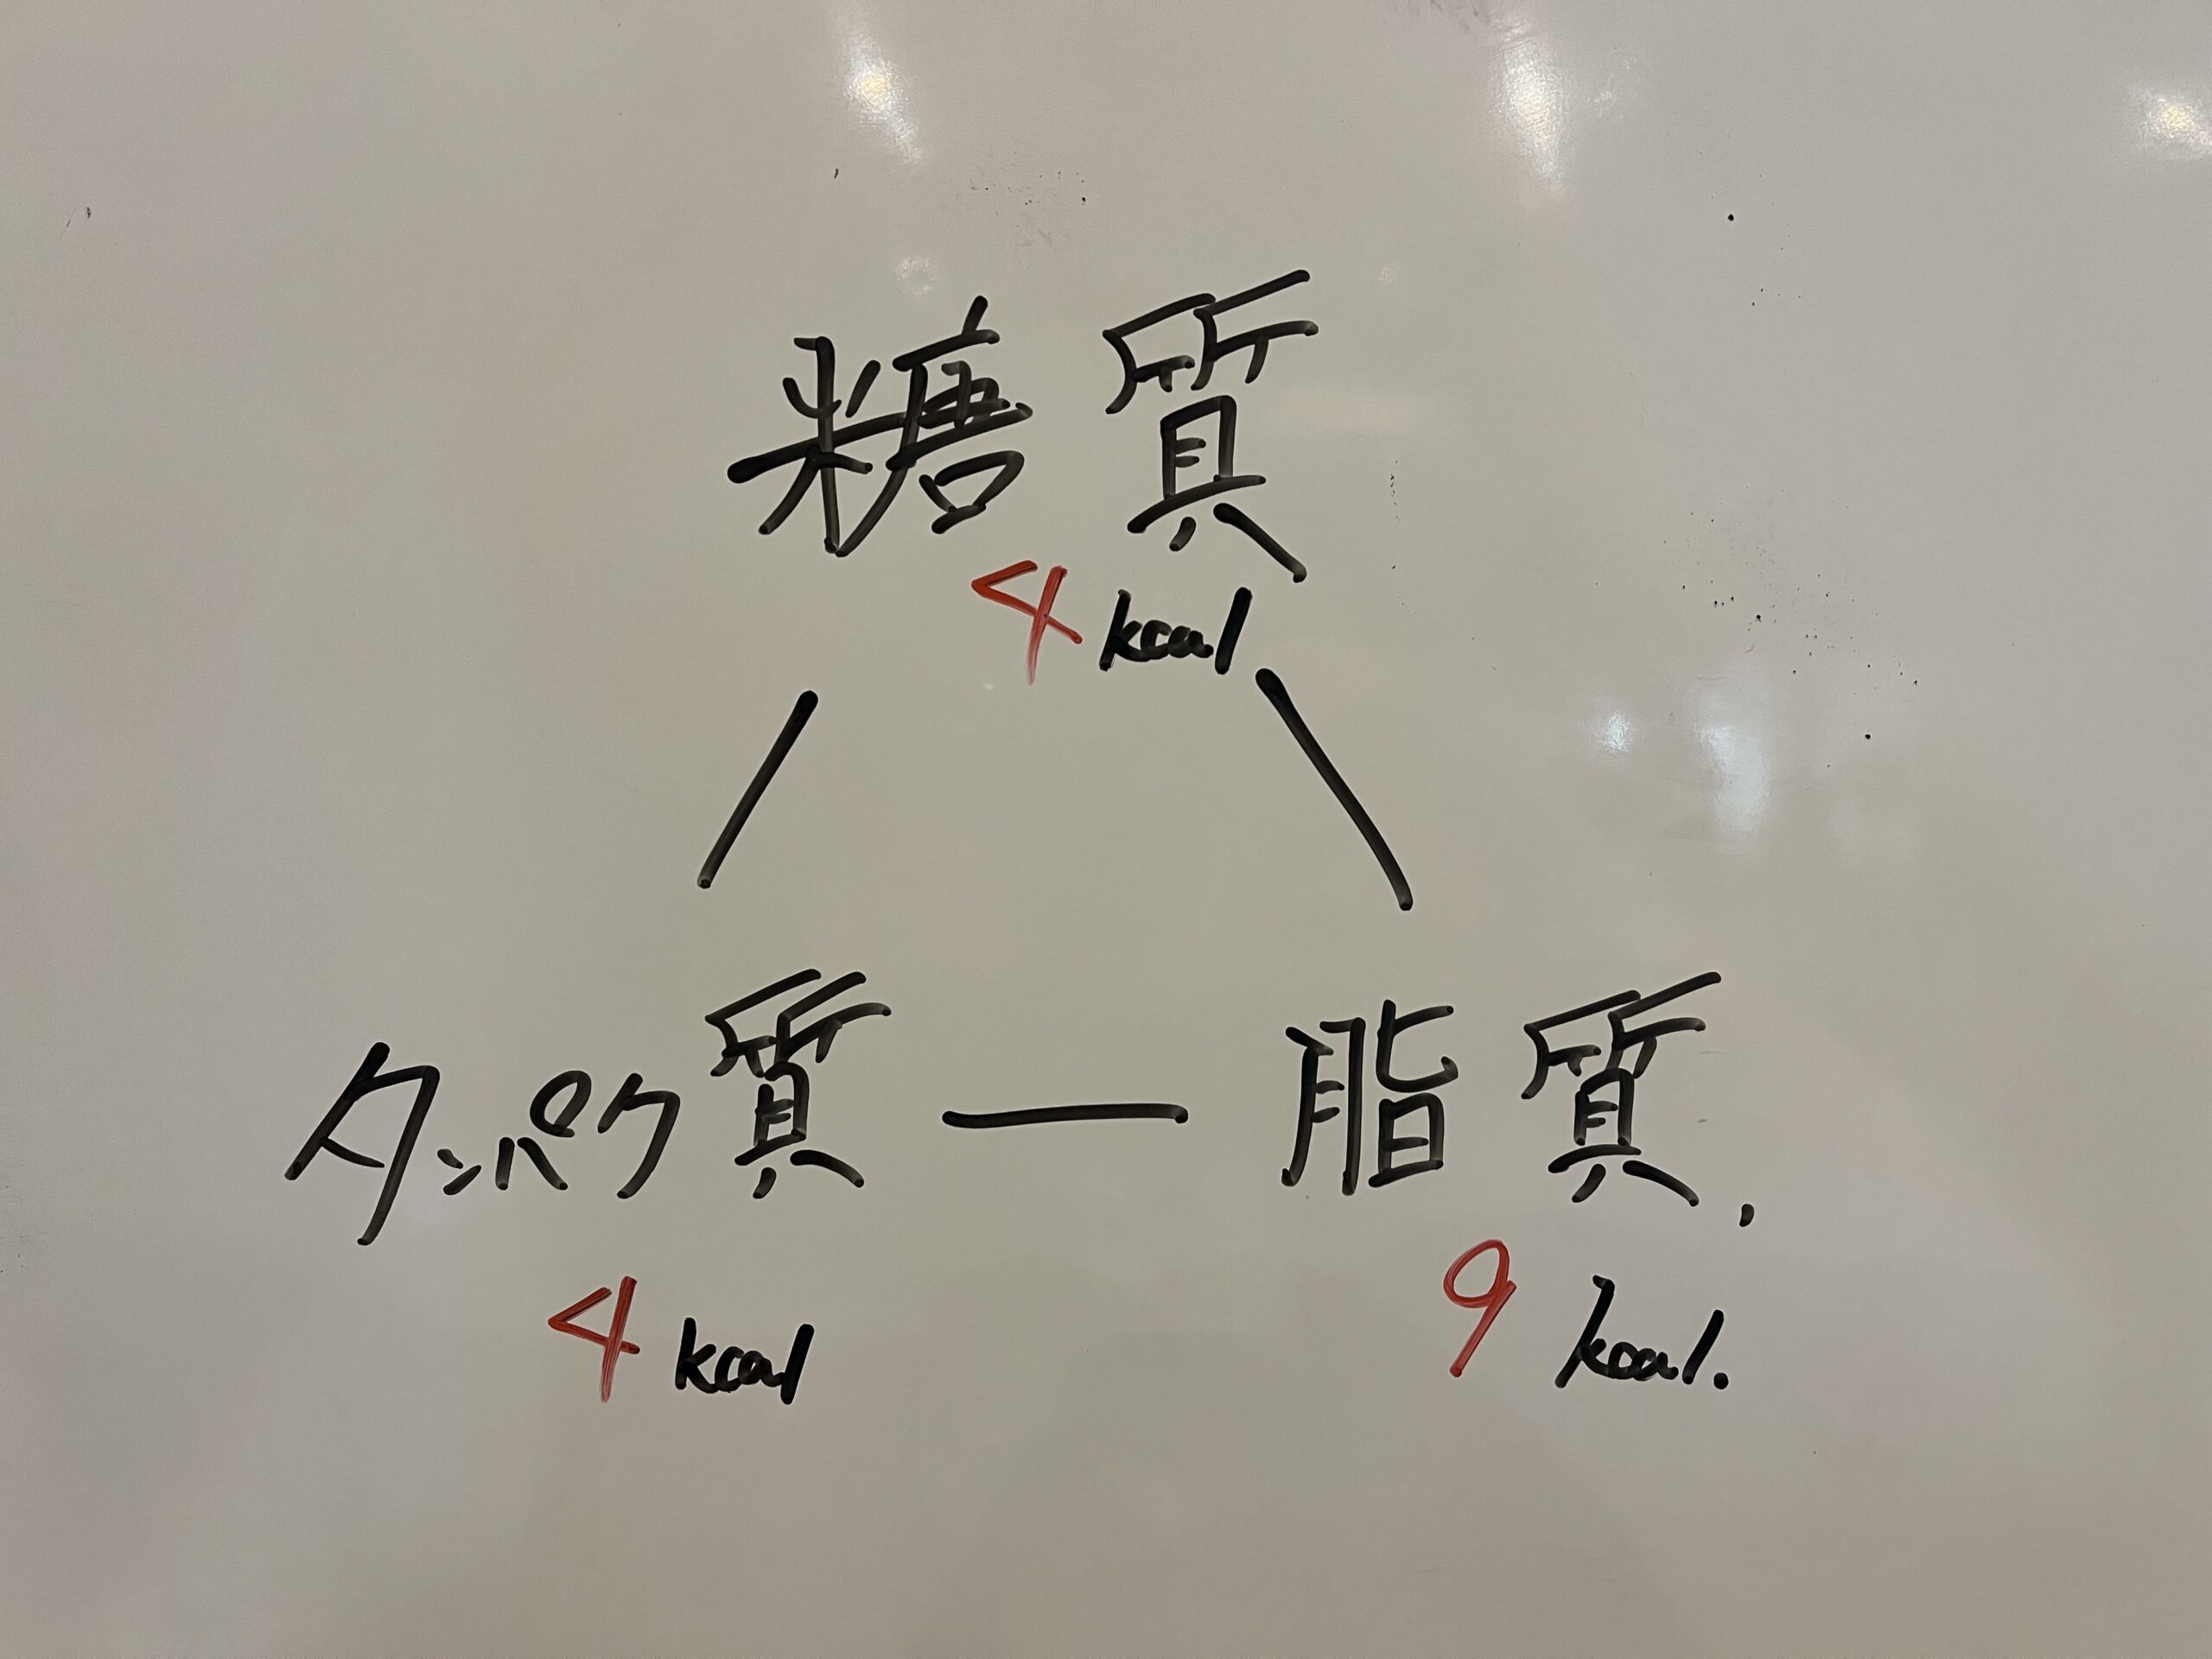 糖質
4 kcal
タンパク質 — 脂質.
4 kcal
9 kcal.